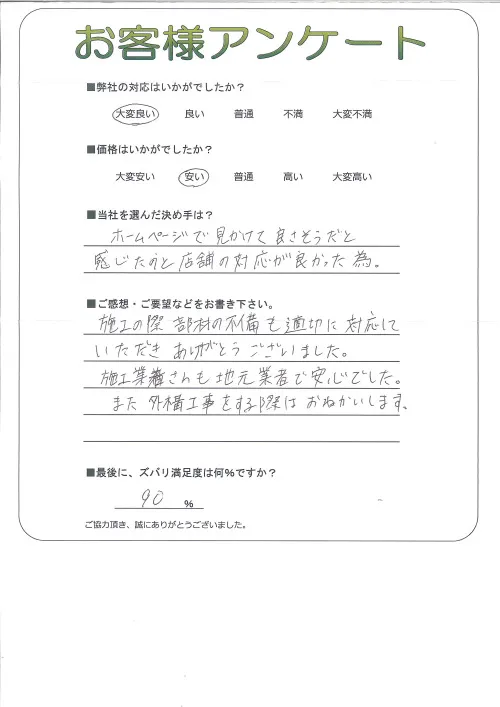 お客様アンケート
■弊社の対応はいかがでしたか？
大変良い 良い 普通 不満 大変不満
■価格はいかがでしたか？
大変安い 安い 普通 高い 大変高い
■当社を選んだ決め手は？
ホームページで見かけて良さそうだと
感じたのと店舗の対応が良かった為。
■ご感想・ご要望などをお書き下さい。
施工の際 部材の不備も適切に対応して
いただき ありがとうございました。
施工業者さんも地元業者で安心でした。
また 外構工事をする際は おねがいします。
■最後に、ズバリ満足度は何％ですか？
90 ％
ご協力頂き、誠にありがとうございました。